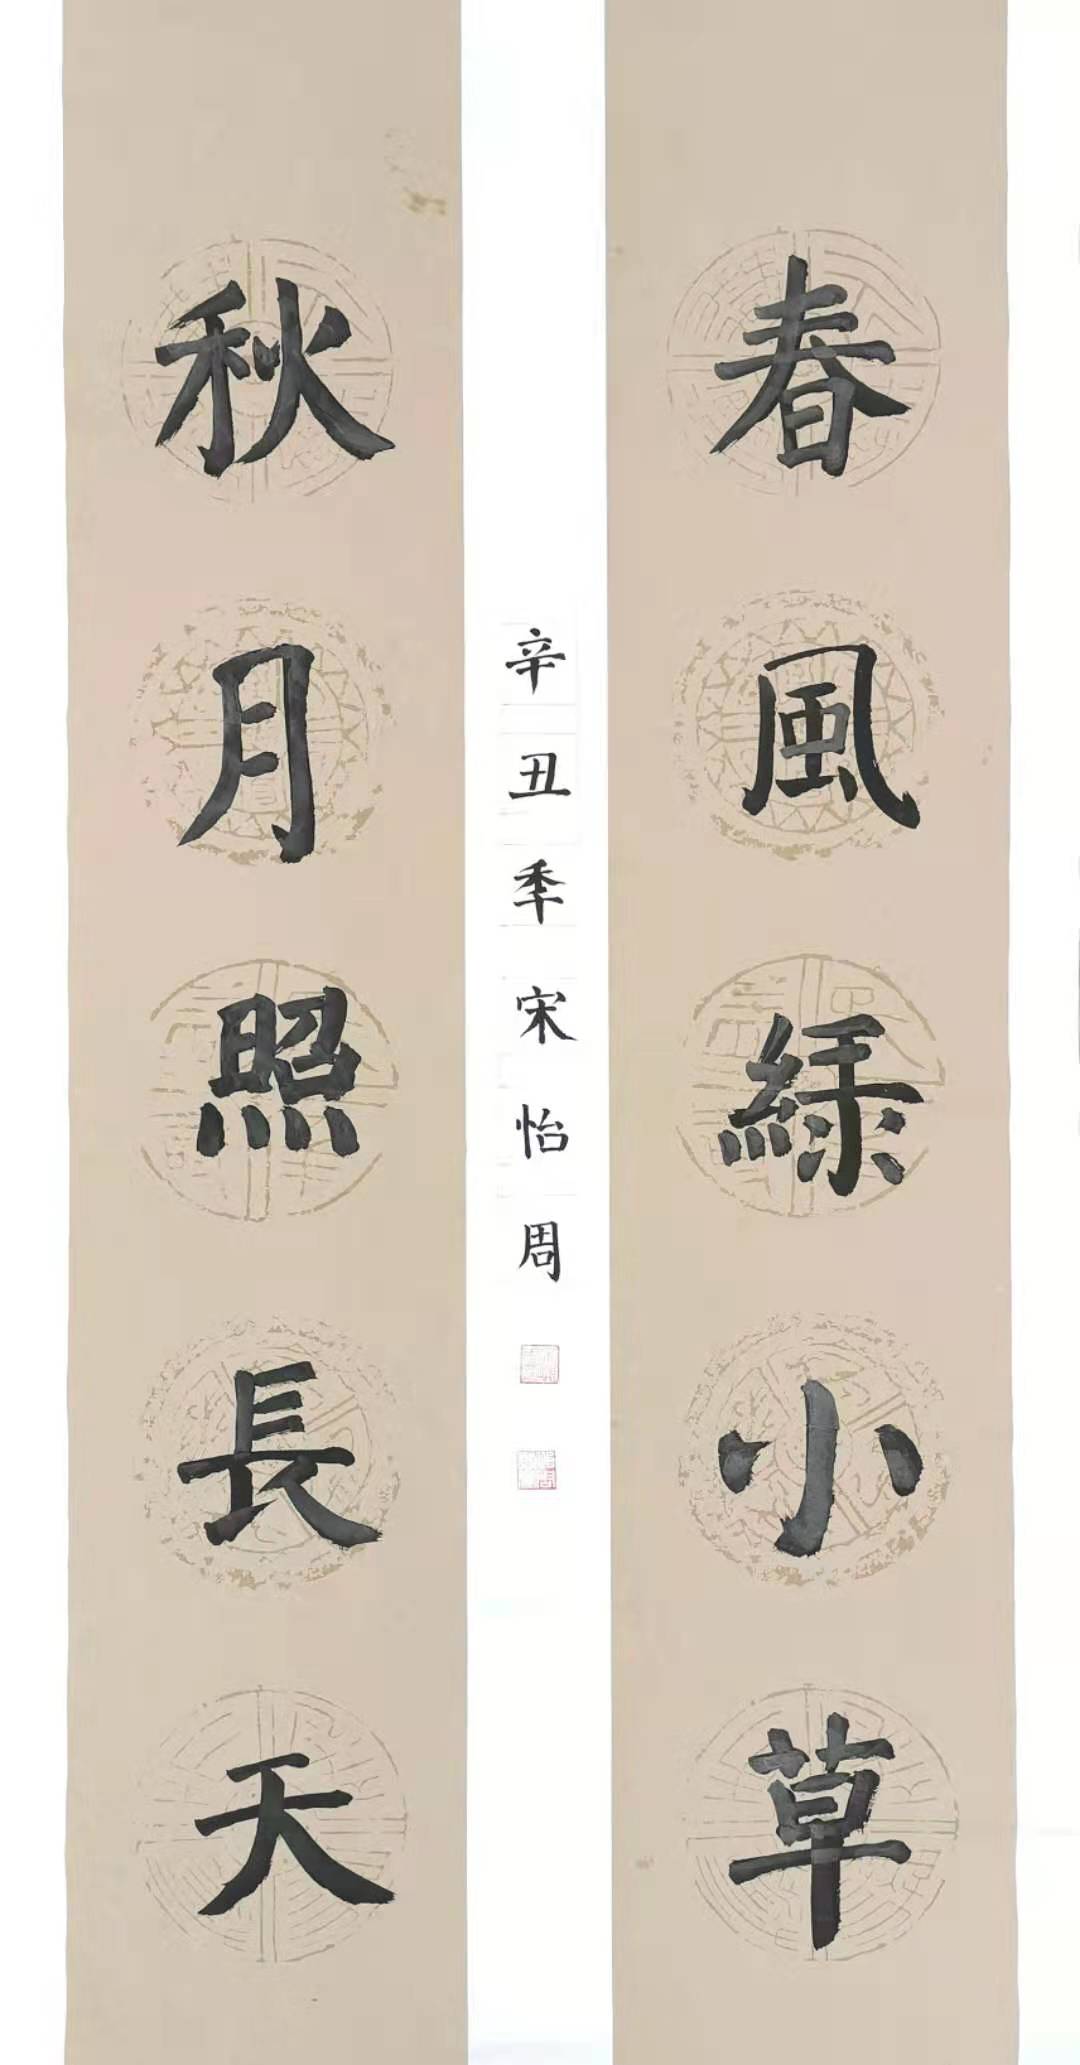 春風緑小草
秋月照長天
辛丑秊宋怡周